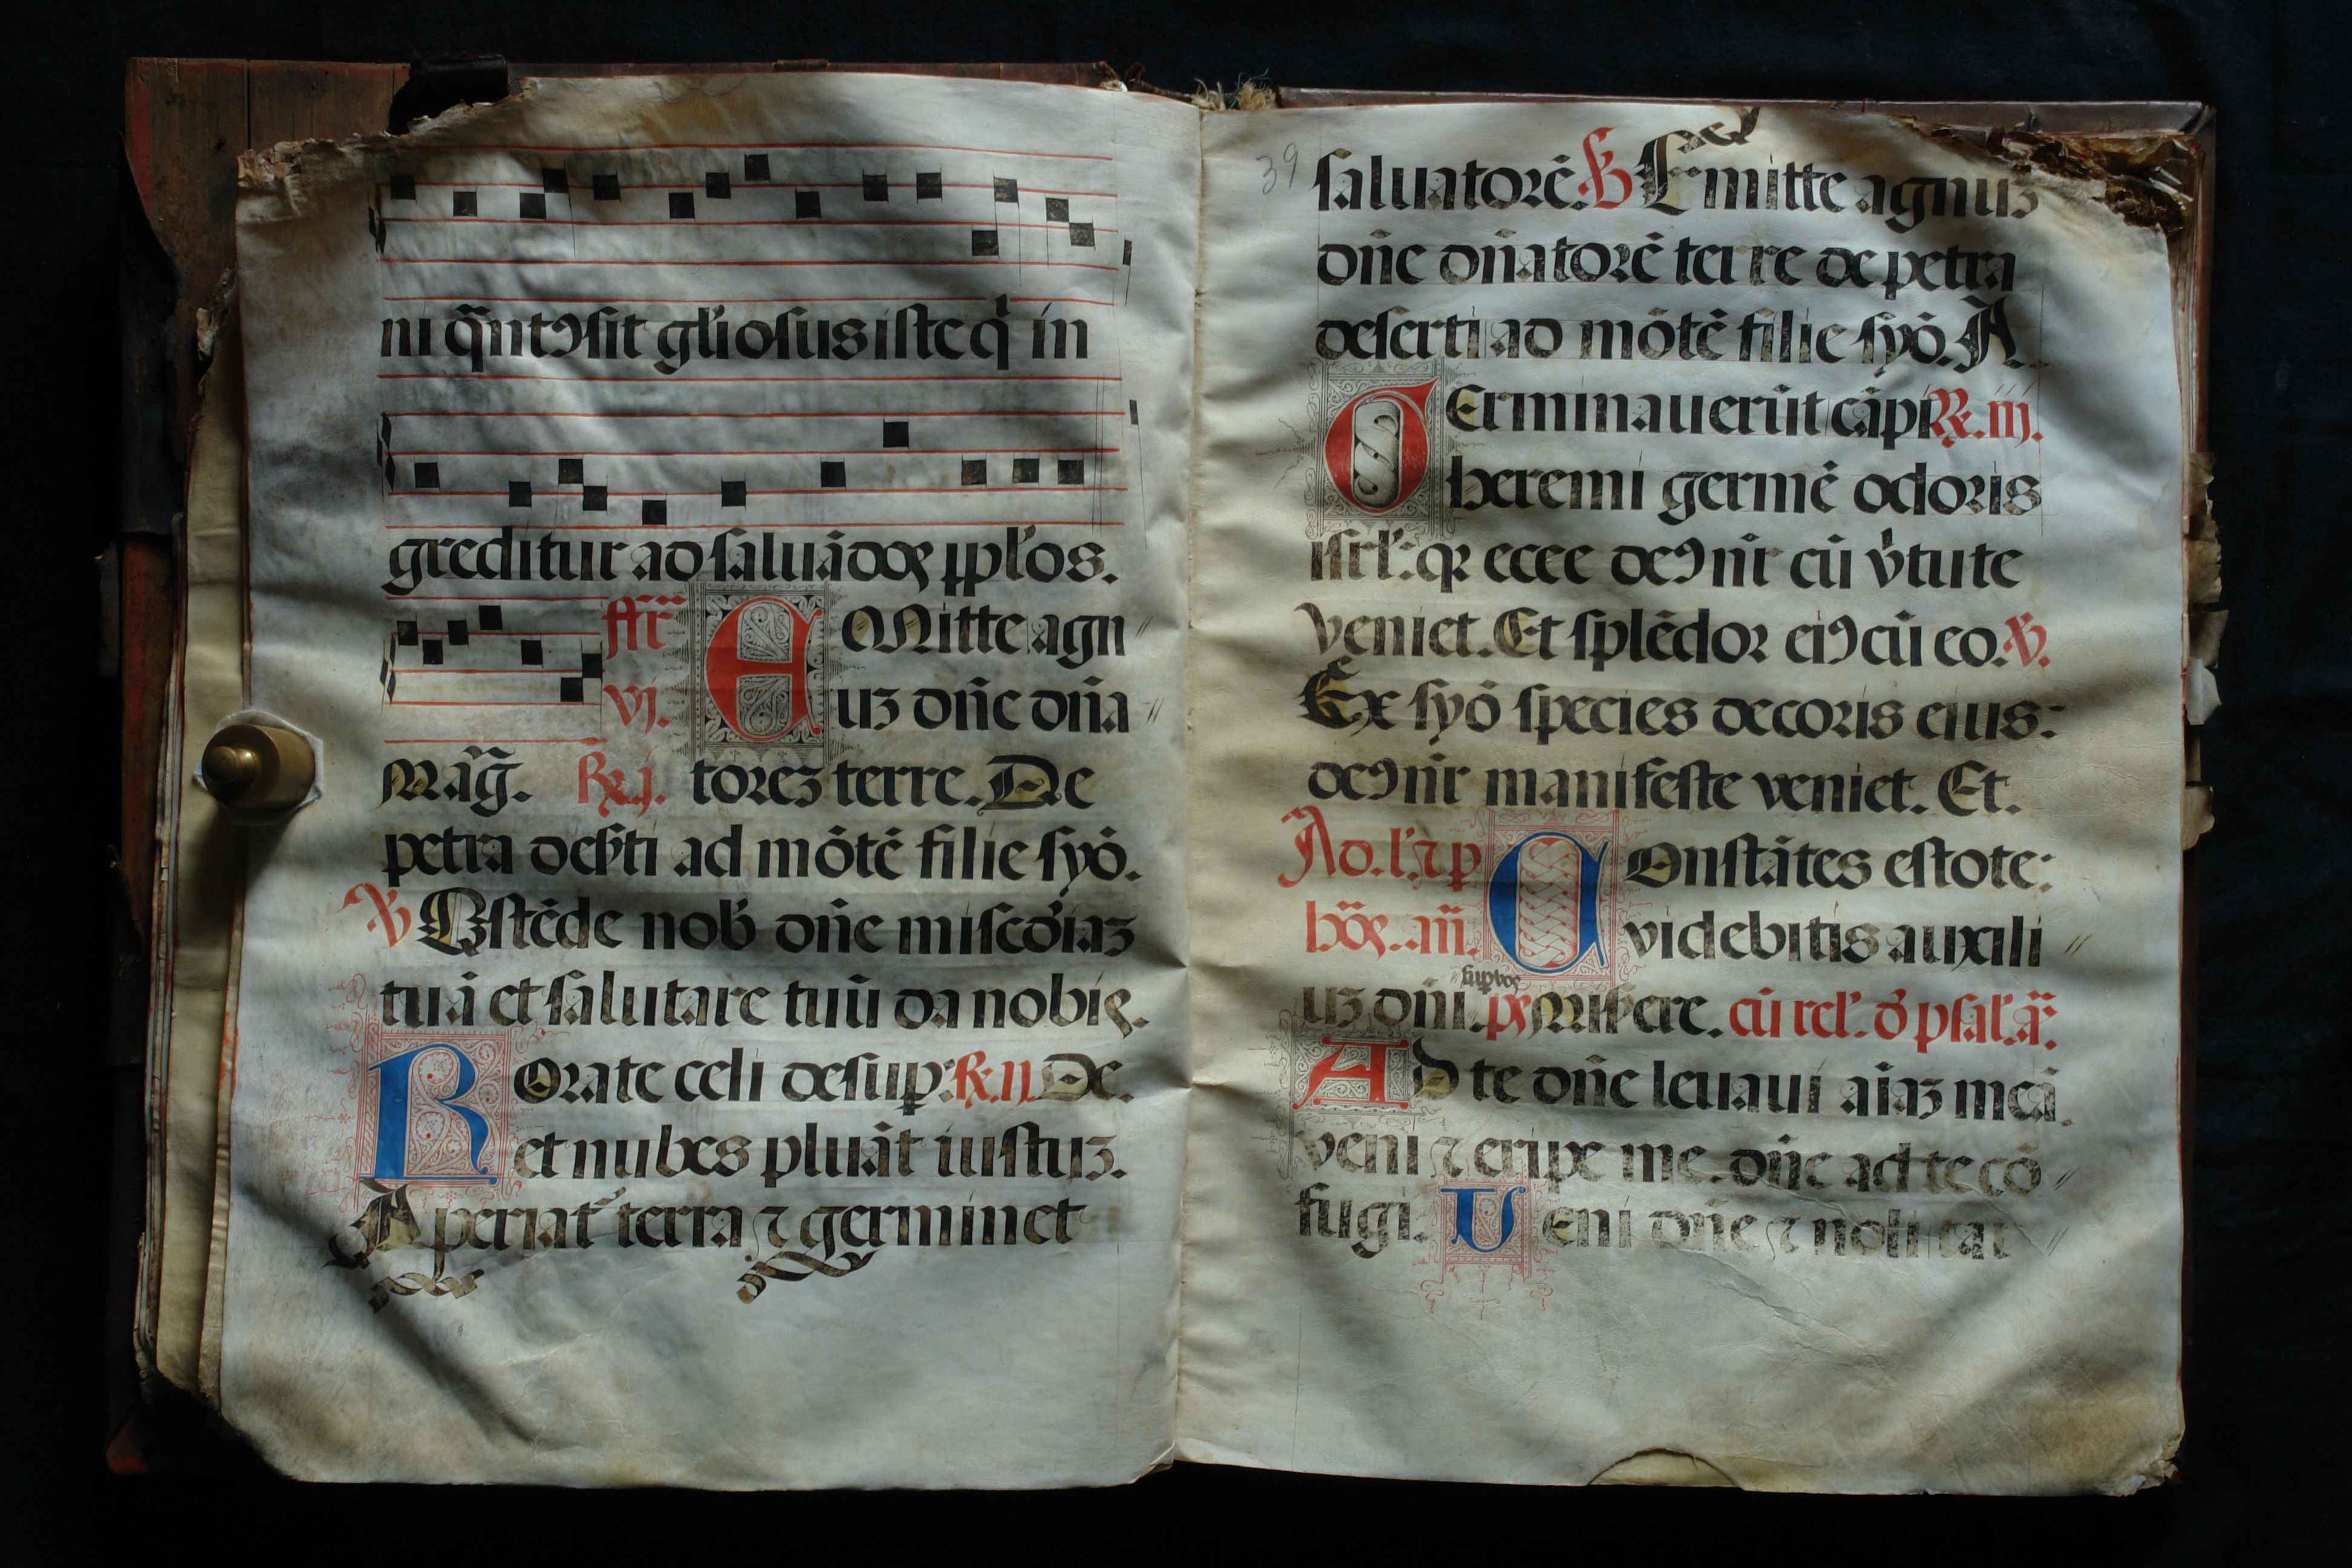 ni q̃ntꝯ sit gl'iosus iste q' in
greditur ad saluãdoꝝ pp̱l'os.
fr̃ vj. EMitte agn
uʒ dñe dña
Mãg̃. R̃. j. toreʒ terre. De
petra deẜti ad mõtẽ filie syõ.
℣ Ostẽde nob̾ dñe mis̃cdiaʒ
tuã et salutare tuũ da nobis.
ROrate celi desuꝑ: ℟. ij. De.
et nubes pluãt iustuʒ.
Aperiat᷑ terra ⁊ germinet
39
saluatorẽ. ℣ Emitte agnuʒ
dñe dñatorẽ terre de petra
deserti ad mõtẽ filie syõ. A.
GErminauerũt cãpi ℟. iij.
heremi germẽ odoris
isrl': qꝛ ecce deꝯ nr̃ cũ v̾tute
veniet. Et splẽdor eiꝯ cũ eo. ℣.
Ex syõ species decoris eius:
deꝯ nr̃ manifeste veniet. Et.
Ad. l'. ⁊ p COnstãtes estote:
hõꝝ. añ. videbitis auxili
uʒ dñi. ps Miẜere. cũ rel'. d' psal'. ã.
AD te dñe leuaui aĩaʒ meã
veni ⁊ eripe me. dñe ad te cõ
fugi. VEni dñe ⁊ noli tar